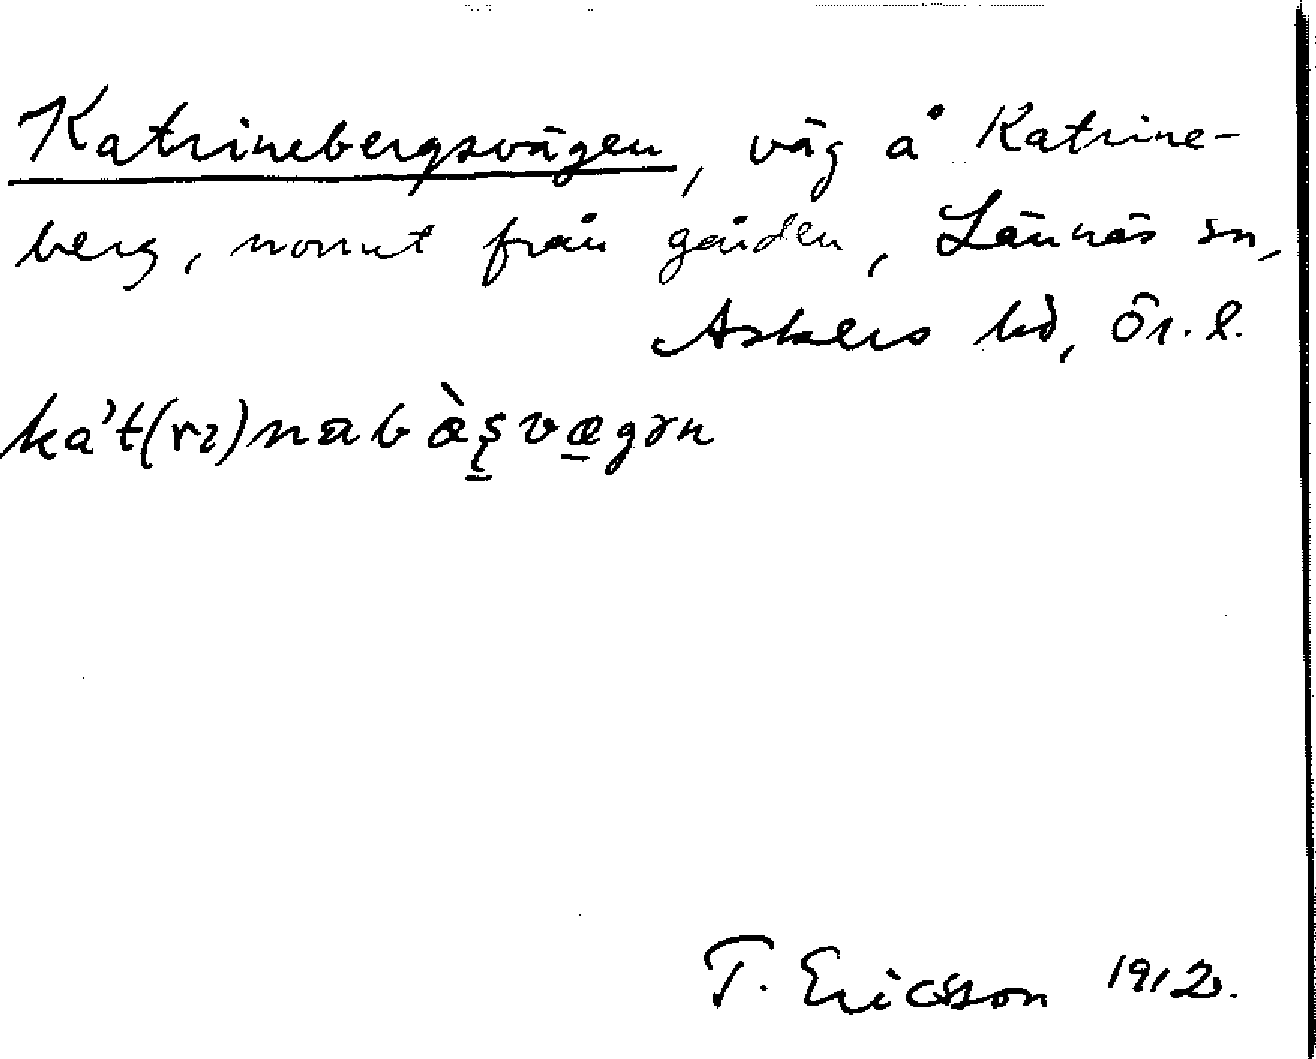 Katrinebergsvägen, väg å Katrine-
berg, norrut från gården, Lännäs sn,
Askers hd, Ör. l.
ka't(rɩ)nabæ̀ʂvægən
T. Ericsson 1912.